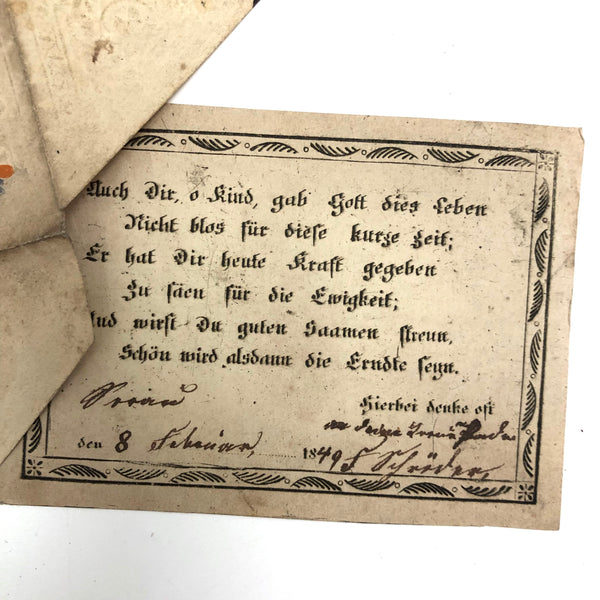 Auch Dir, o Kind, gab Gott dies Leben
Nicht blos für diese kurze Zeit;
Er hat Dir heute Kraft gegeben
Zu säen für die Ewigkeit;
Und wirst Du guten Saamen streun,
Schön wird alsdann die Erndte seyn.
Sorau
Hierbei denke oft
den 8 Februar, 1849 F Schröder,